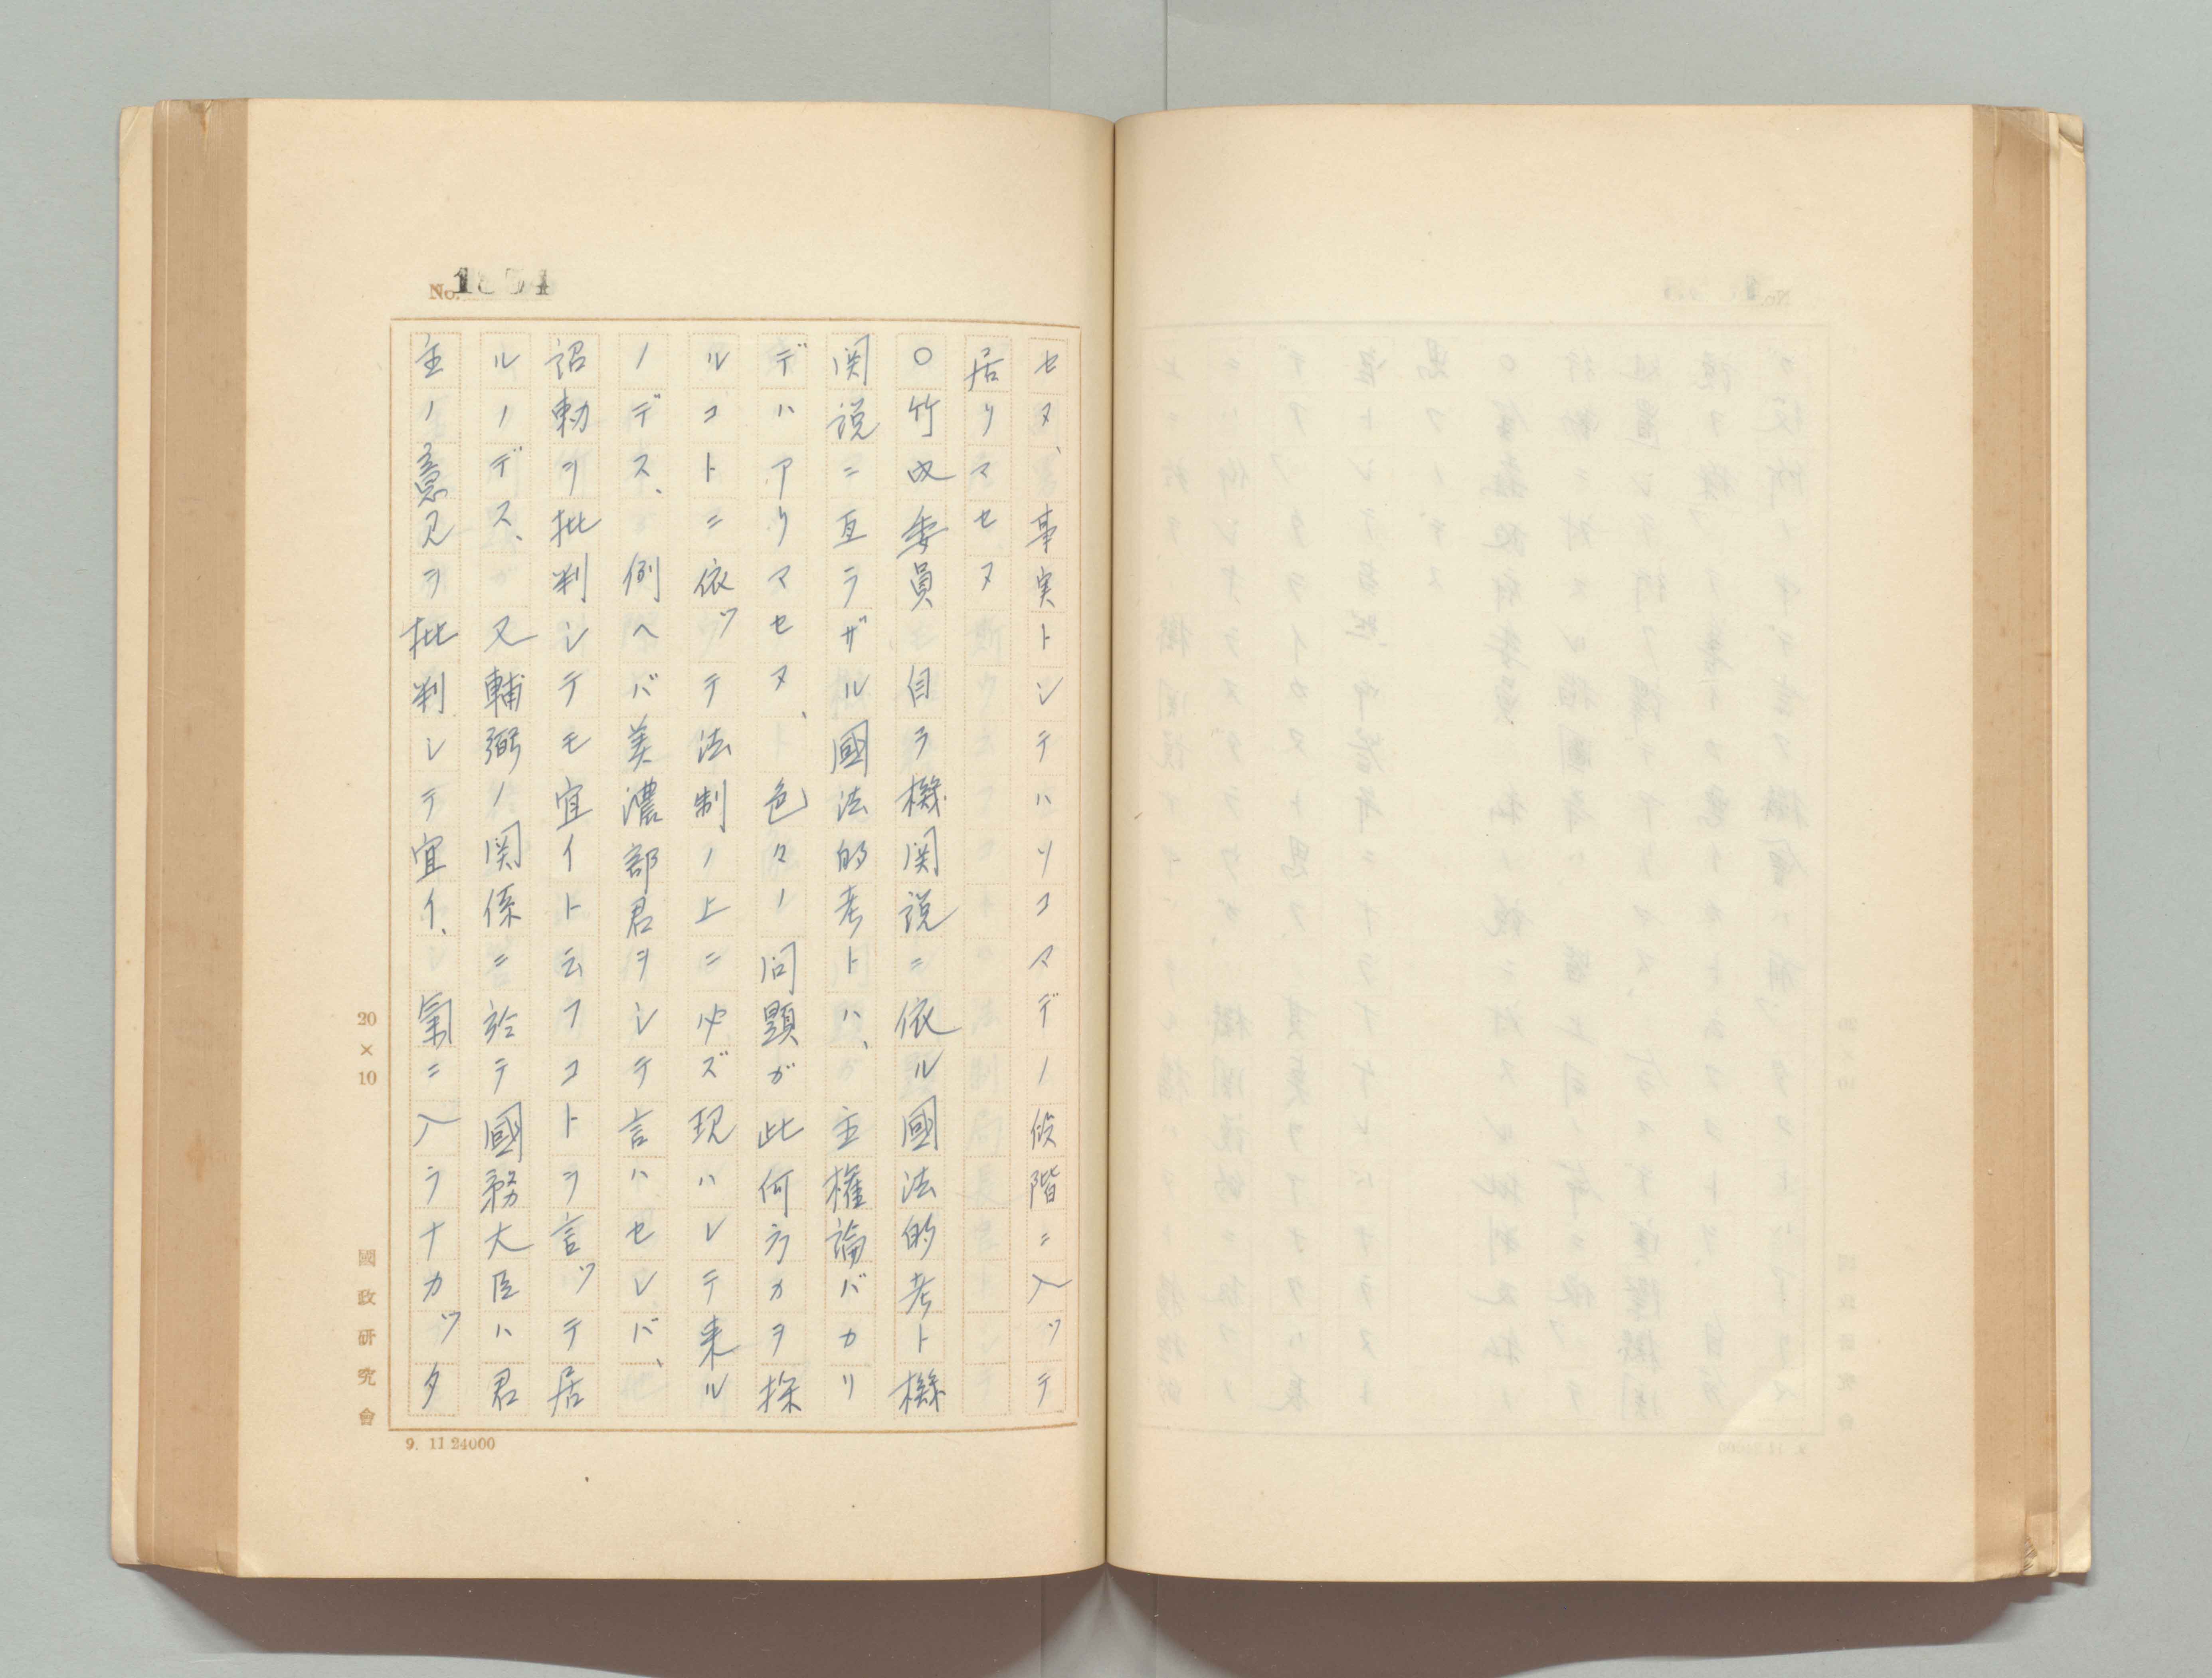 No. 1854
セヌ、事実トシテハソコマデノ候階ニ入ツテ
居リマセヌ
〇竹内委員 自ラ機関説ニ依ル國法的考ト機
関説ニ亙ラザル國法的考トハ、主權論バカリ
デハアリマセヌ、色々ノ問題ガ此何方カヲ採
ルコトニ依ツテ法制ノ上ニ必ズ現ハレテ来ル
ノデス、例ヘバ美濃部君ヲシテ言ハセレバ、
詔勅ヲ批判シテモ宜イト云フコトヲ言ツテ居
ルノデス、又輔弼ノ関係ニ於テ國務大臣ハ君
主ノ意見ヲ批判シテ宜イ、氣ニ入ラナカツタ
20×10
國政硏究會
9. 11 24000